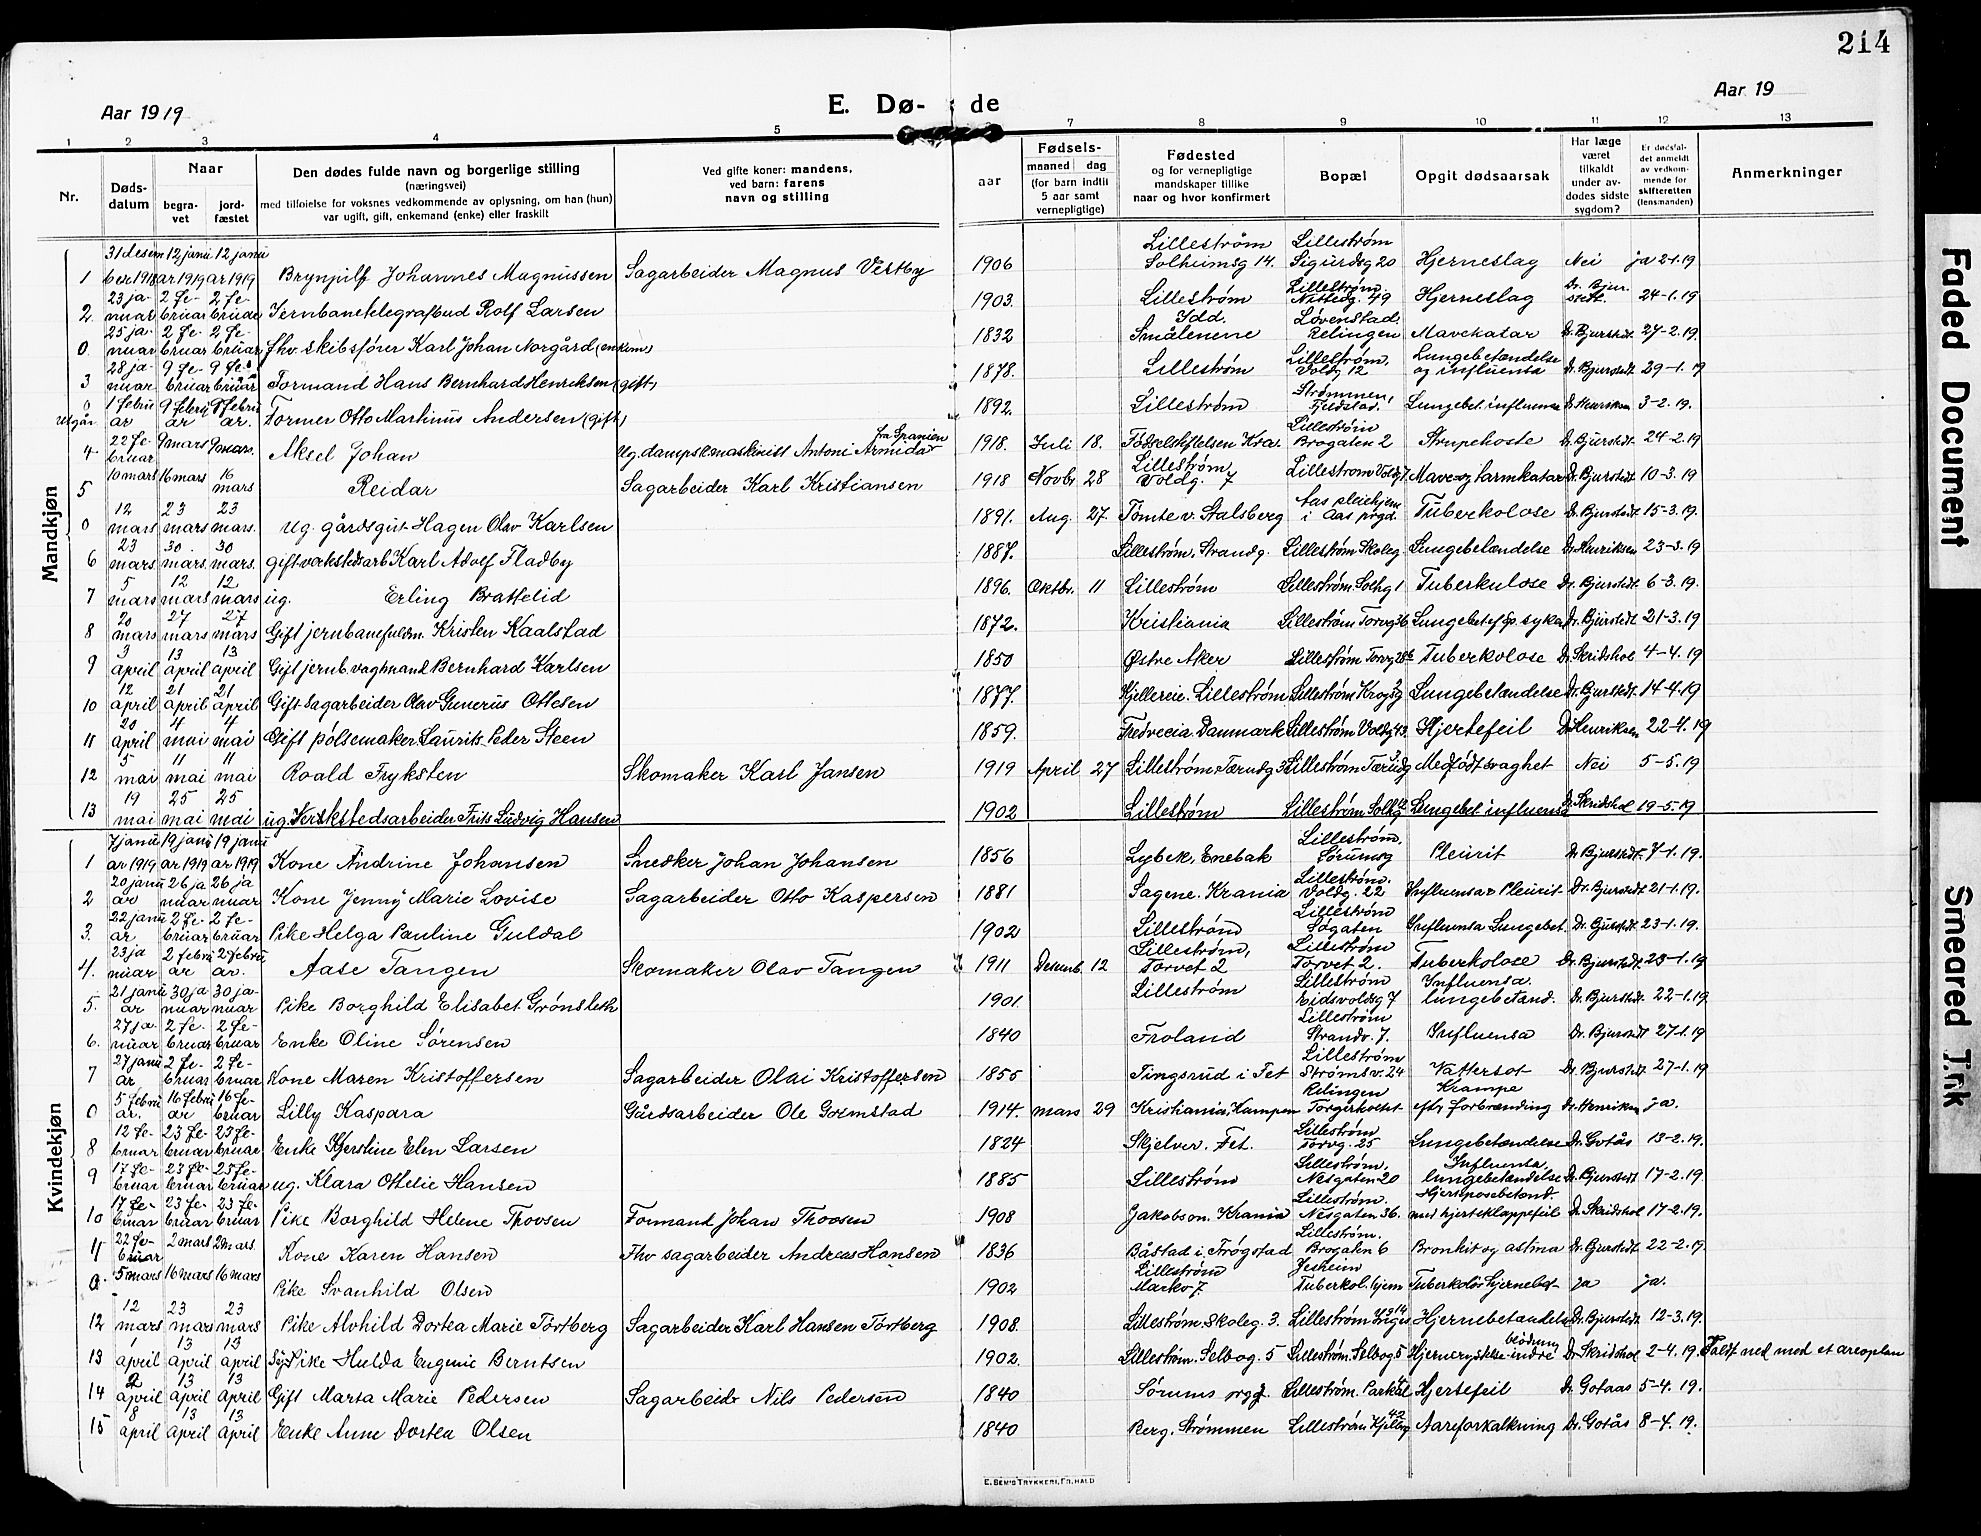 214
Aar 1919
E. Dø- de
Aar 19
1 2 3 4 5 7 8 9 10 11 12 13
Nr.
Døds-datum
Naar
begra-vet
jord-fæstet
Den dødes fulde navn og borgerlige stilling
(næringsvei)
med tilføielse for voksnes vedkommende av oplysning, om han (hun)
var ugift, gift, enkemand (enke) eller fraskilt
Ved gifte koner: mandens,
ved barn: farens
navn og stilling
aar
Fødsels-
maaned dag
(for barn indtil
5 aar samt
vernepligtige)
Fødested
og for vernepligtige
mandskaper tillike
naar og hvor konfirmert
Bopæl
Opgit dødsaarsak
Har læge
været
tilkaldt
under av-
dødes sidste
sygdom?
Er dødsfal-
det anmeldt
av vedkom-
mende for
skifteretten
(lensmanden)
Anmerkninger
Mandkjøn
1 31 desember 1918 12 januar 1919 12 januar 1919 Brynjulf Johannes Magnussen Sagarbeider Magnus Vestby 1906 Lillestrøm Solheimsg 14. Lillestrøm Sigurdsg 20 Hjerneslag Nei ja 2-1.19
2 23 januar 2 februar 2 februar Jernbanetelegrafbud Rolf Larsen 1903. Lillestrøm Lillestrøm. Nittedg. 49 Hjerneslag 24-1.19
0. 25 januar 2 februar 2 februar fhv. skibsfører Karl Johan Norgård (enkem) 1832 Idd. Smålenene Løvenstad. Relingen Mavekatar Dr. Bjurstedt. 27-2.19.
3 28 januar 9 februar 9 februar Formand Hans Bernhard Henriksen (gift) 1878. Lillestrøm Lillestrøm, Voldg 12 Lungebetændelse og influensa Dr. Bjurstedt. 29-1.19
0 Utgår 1 februar 9 februar 9 februar. Former Otto Martinus Andersen (gift) 1892. Lillestrøm Strømmen, Fjeldstad. Lungebet. influensa Dr. Henriksen 3-2.19.
4 22 februar 9 mars 9 mars. Aksel Johan Ug. dampsk. maskinist Antoni Armida fra Spanien 1918. Juli 18. Fødselstiftelsen Kra. Lillestrøm Brogaten 2 Strupehoste Dr. Bjurstedt. 24-2.19
5 10 mars 16 mars 16 mars Reidar Sagarbeider Karl Kristiansen 1918 Novbr 28 Lillestrøm, Voldg. 7 Lillestrøm Voldg 7 Mave og tarmkatar Dr. Bjurstedt 10-3.19
0 12 mars 23 mars 23 mars. ug. gårdsgut Hagen Olav Karlsen 1891. Aug. 27. Tomte v. Stalsberg Aas pleiehjem i Aas prgd. Tuberkolose Dr. Bjurstedt. 15-3.19.
6 23 mars 30. mars. 30 mars. gift verkstedsarb Karl Adolf Fladby 1887. Lillestrøm. Strandg. Lillestrøm Skoleg Lungebetændelse Dr. Henriksen 23-3.19
7 5 mars 12 mars 12 mars ug. Erling Brattelid 1896. Oktbr. 11 Lillestrøm Lillestrøm Solhg 1 Tuberkulose Dr. Bjurstedt. 6-3.19.
8 20 mars 27 mars 27 mars Gift jernbanefuldm. Kristen Kaalstad 1872. Kristiania Lillestrøm Torvg 36 Dr. Bjurstedt. 21-3.19
9 3 april 13 april 13 april Gift jernb. vagtmand Bernhard Karlsen 1850 Østre Aker Lillestrøm Torvg 28b Tuberkolose Dr. Skridshol 4-4.19
10 12 april 21 april 21 april Gift sagarbeider Olav Gunerius Ottesen 1877. Kjellereie. Lillestrøm Lungebetændelse Dr. Bjurstedt. 14-4.19
11 20 april 4 mai 4 mai Gift pølsemaker Laurits Peder Steen 1859. Fredrecia Danmark Lillestrøm Voldg 43. Hjertefeil Dr. Henriksen 22-4.19
12 5 mai 11 mai 11 mai Roald Fryksten Skomaker Karl Jansen 1919 April 27 Lillestrøm. Tærudg 3 Lillestrøm Tærudg 3 Medfødt svaghet Nei 5-5.19
13 19 mai 25 mai 25 mai ug. Verkstedsarbeider Frits Ludvig Hansen 1902 Lillestrøm Lillestrøm Lungebet. influensa Dr. Skridshol 19-5.19
Kvindekjøn
1 7 januar 1919 19 januar 1919 19 januar 1919 Kone Andrine Johansen Snedker Johan Johansen 1856 Lybek, Enebak Lillestrøm, Sørumsg Pleurit Dr. Bjurstedt. 7-1.19.
2 20 januar 26 januar 26 januar Kone Jenny Marie Lovise Sagarbeider Otto Kaspersen 1881 Sagene. Krania Lillestrøm. Voldg. 22 Influensa & Pleurit Dr. Bjurstedt 21-1.19.
3. 22 januar 2 februar 2 februar Pike Helga Pauline Guldal 1902 Lillestrøm Lillestrøm Søgaten Influensa Lungebet. Dr. Bjurstedt. 23-1.19.
4. 23 januar 2 februar 2 februar. Aase Tangen Skomaker Olav Tangen 1911 Desemb. 12 Lillestrøm, Torvet 2 Lillestrøm Torvet 2. Tuberkolose Dr. Bjurstedt. 23-1.19
5. 21 januar 30 januar 30 januar Pike Borghild Elisabet Grønsleth 1901. Lillestrøm Lillestrøm Eidsvoldsg 7 Influensa. lungebetænd. Dr. Bjurstedt. 22-1.19
6. 27 januar 2 februar 2 februar Enke Oline Sørensen 1840 Froland Lillestrøm Strandv. 7. Influensa Dr. Bjurstedt. 27-1.19
7 27 januar 2 februar 2 februar Kone Maren Kristoffersen Sagarbeider Olai Kristoffersen 1855 Tingsrud i Fet Lillestrøm Strømsv. 24 Vattersot Dr. Bjurstedt. 27-1.19
0 5 februar. 16 februar 16 februar Lilly Kaspara Gårdsarbeider Ole Gormstad 1914. mars 29 Kristiania, Kampen Relingen Krampe eftr forbrænding Dr. Henriksen ja.
8 12 februar 23 februar 23 februar Enke Kjerstine Elen Larsen 1824 Skjelver. Fet. Lillestrøm Torvg. 25 Lungebetændelse Dr. Gotås 13-2.19.
9 17 februar 23 februar 23 februar ug. Klara Ottelie Hansen 1885 Lillestrøm Lillestrøm, Nesgaten 20 Influensa, lungebetændelse Dr. Bjurstedt. 17-2.19.
10 17 februar 23 februar 23 februar Pike Borghild Helene Thovsen Formand Johan Thovsen 1908 Jakobson. Krania Lillestrøm. Nesgaten 36. Hjerteposebetænd. med hjerteklappefeil Dr. Skridshol 17-2.19.
11 22 februar 2 mars 2 mars. Kone Karen Hansen Fhv sagarbeider Andreas Hansen 1836 Båstad i Trøgstad Lillestrøm. Brogaten 6 Bronkit og astma Dr. Bjurstedt. 22-2.19
0. 5 mars 16 mars 16 mars Pike Svanhild Olsen 1902 Lillestrøm Markv 7. Jesheim Tuberkol. hjem Tuberkoløs hjernebet. ja ja.
12 12 mars 23 mars 23 mars Pike Alvhild Dortea Marie Tortberg Sagarbeider Karl Hansen Tortberg 1908. Lillestrøm. Skoleg. 3. Lillestrøm Hjernebetændelse Dr. Bjurstedt 12-3.19.
13 1 april 13 april 13 april Sypike Hulda Eugenie Berntsen 1902. Lillestrøm. Selbog. 5 Lillestrøm. Selbog 5 Hjernerystelse indre blødning Dr. Skridshol 2-4.19. Faldt ned med et areoplan
14 2 april 13 april 13 april Gift Marta Marie Pedersen Sagarbeidr Nils Pedersen 1840 Sørums prgj. Lillestrøm. Hjertefeil Dr. Gotaas 5-4.19.
15 8 april 13 april 13 april Enke Anne Dortea Olsen 1840 Berg. Strømmen Lillestrøm Aareforkalkning Dr. Gotås 8-4.19.
E. SEM'S TRYKKERI, FR.HALD
Faded Document
Smeared Trk.